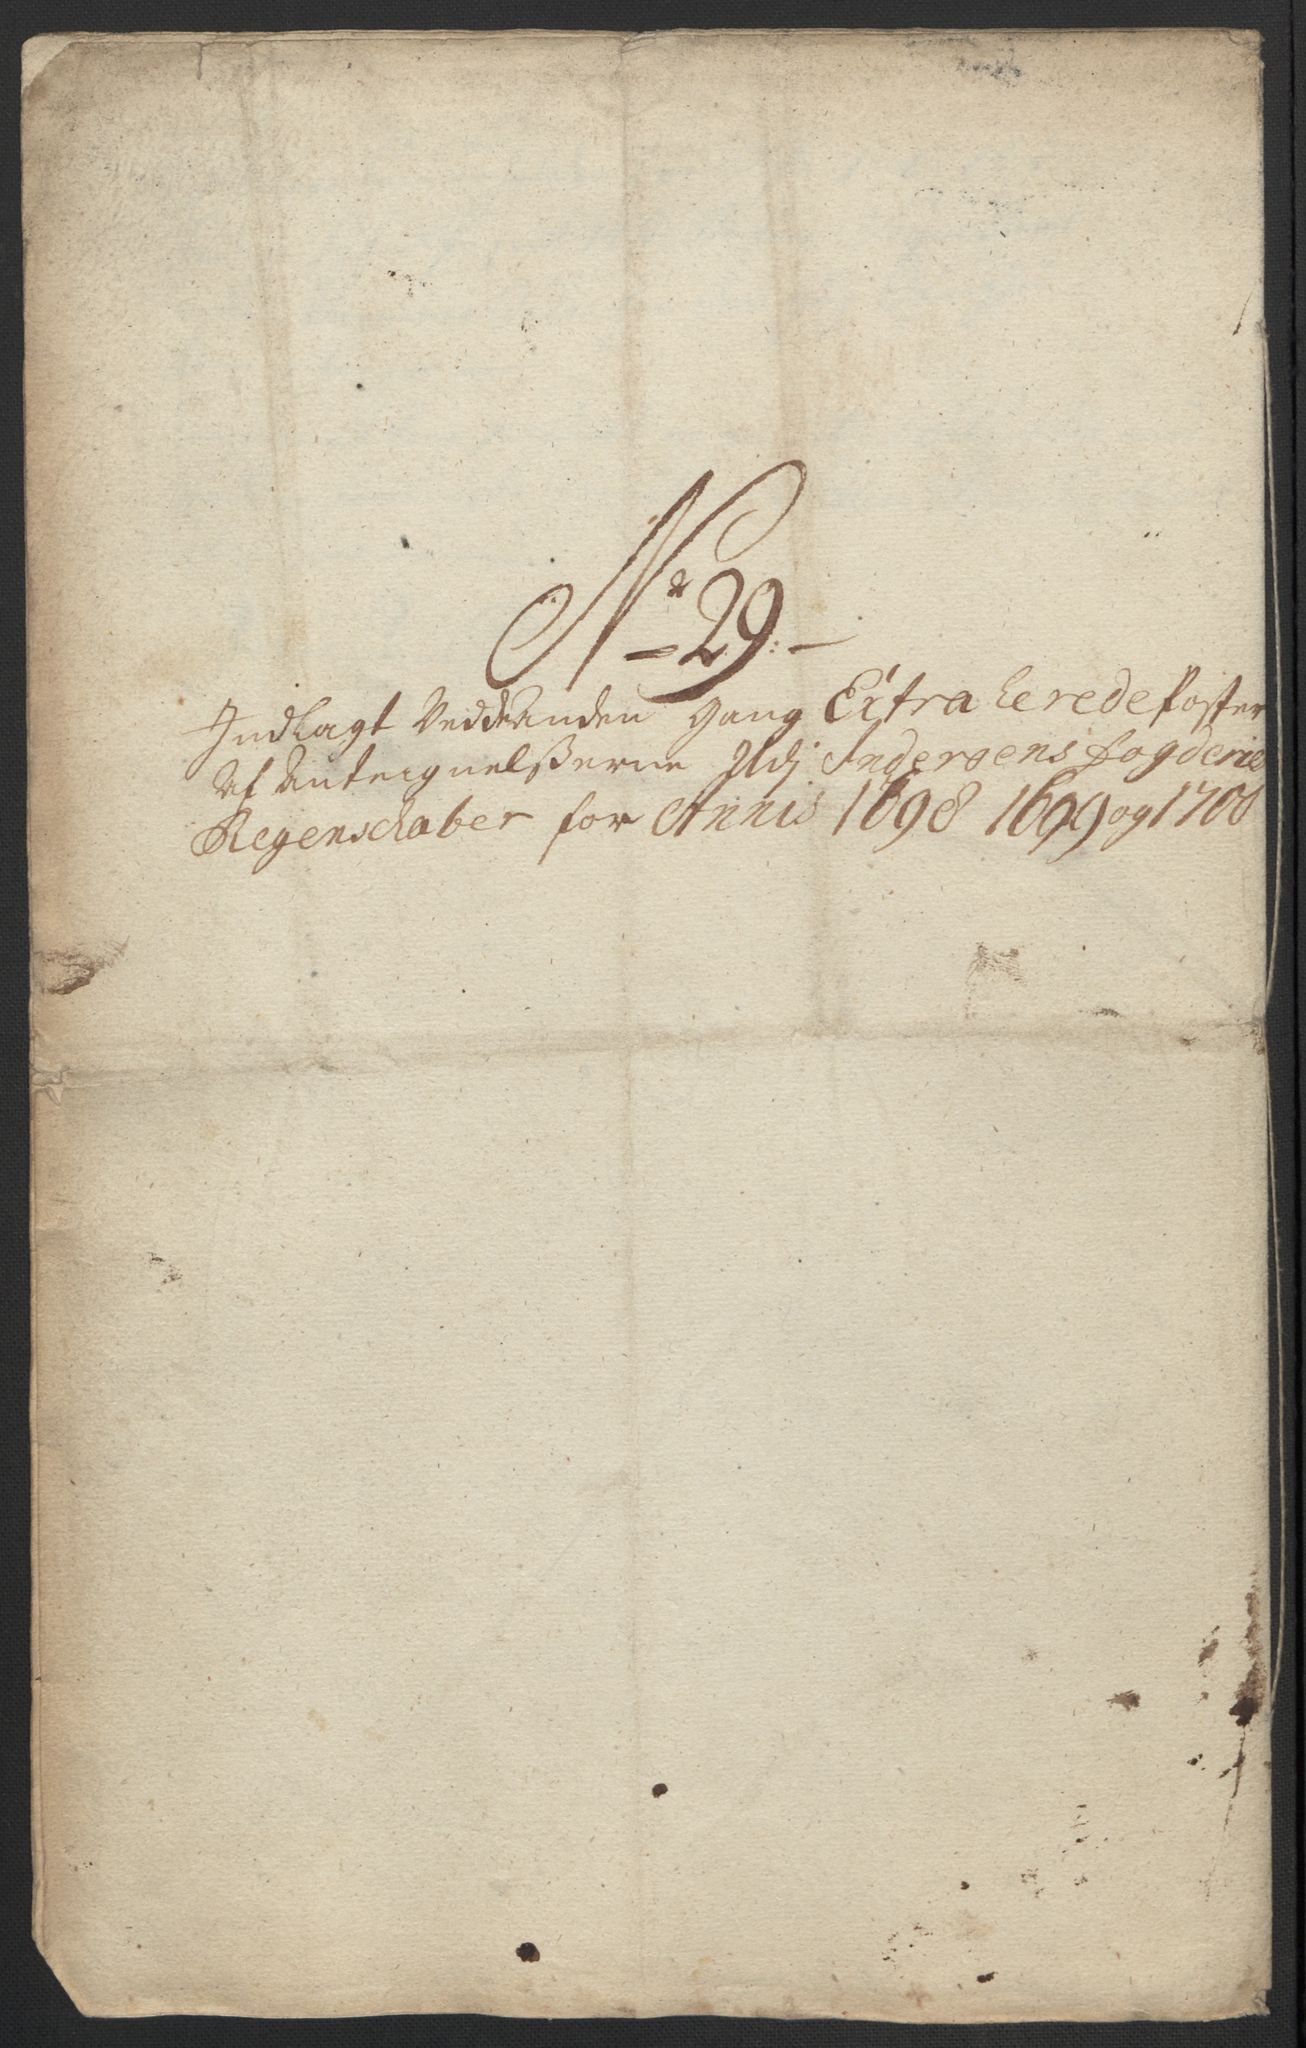 No 29.
Indlagt Ved dend Anden gang Extraherede Poster
Af Anteignelsserne Udj Indersens fogderies
Regenschaber for Annis 1698 1699 og 1700